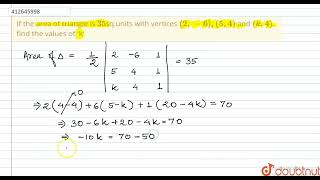 412645898
If the area of triangle is 35sq units with vertices (2, −6), (5, 4) and (k, 4),
find the values of 'k'
Area of Δ = 1/2 | 2 -6 1 | = 35
5 4 1
k 4 1
⇒ 2(4-4)+6(5-k)+1(20-4k)=70
0
⇒ 30-6k+20-4k=70
⇒ -10k = 70-50
doubtnut